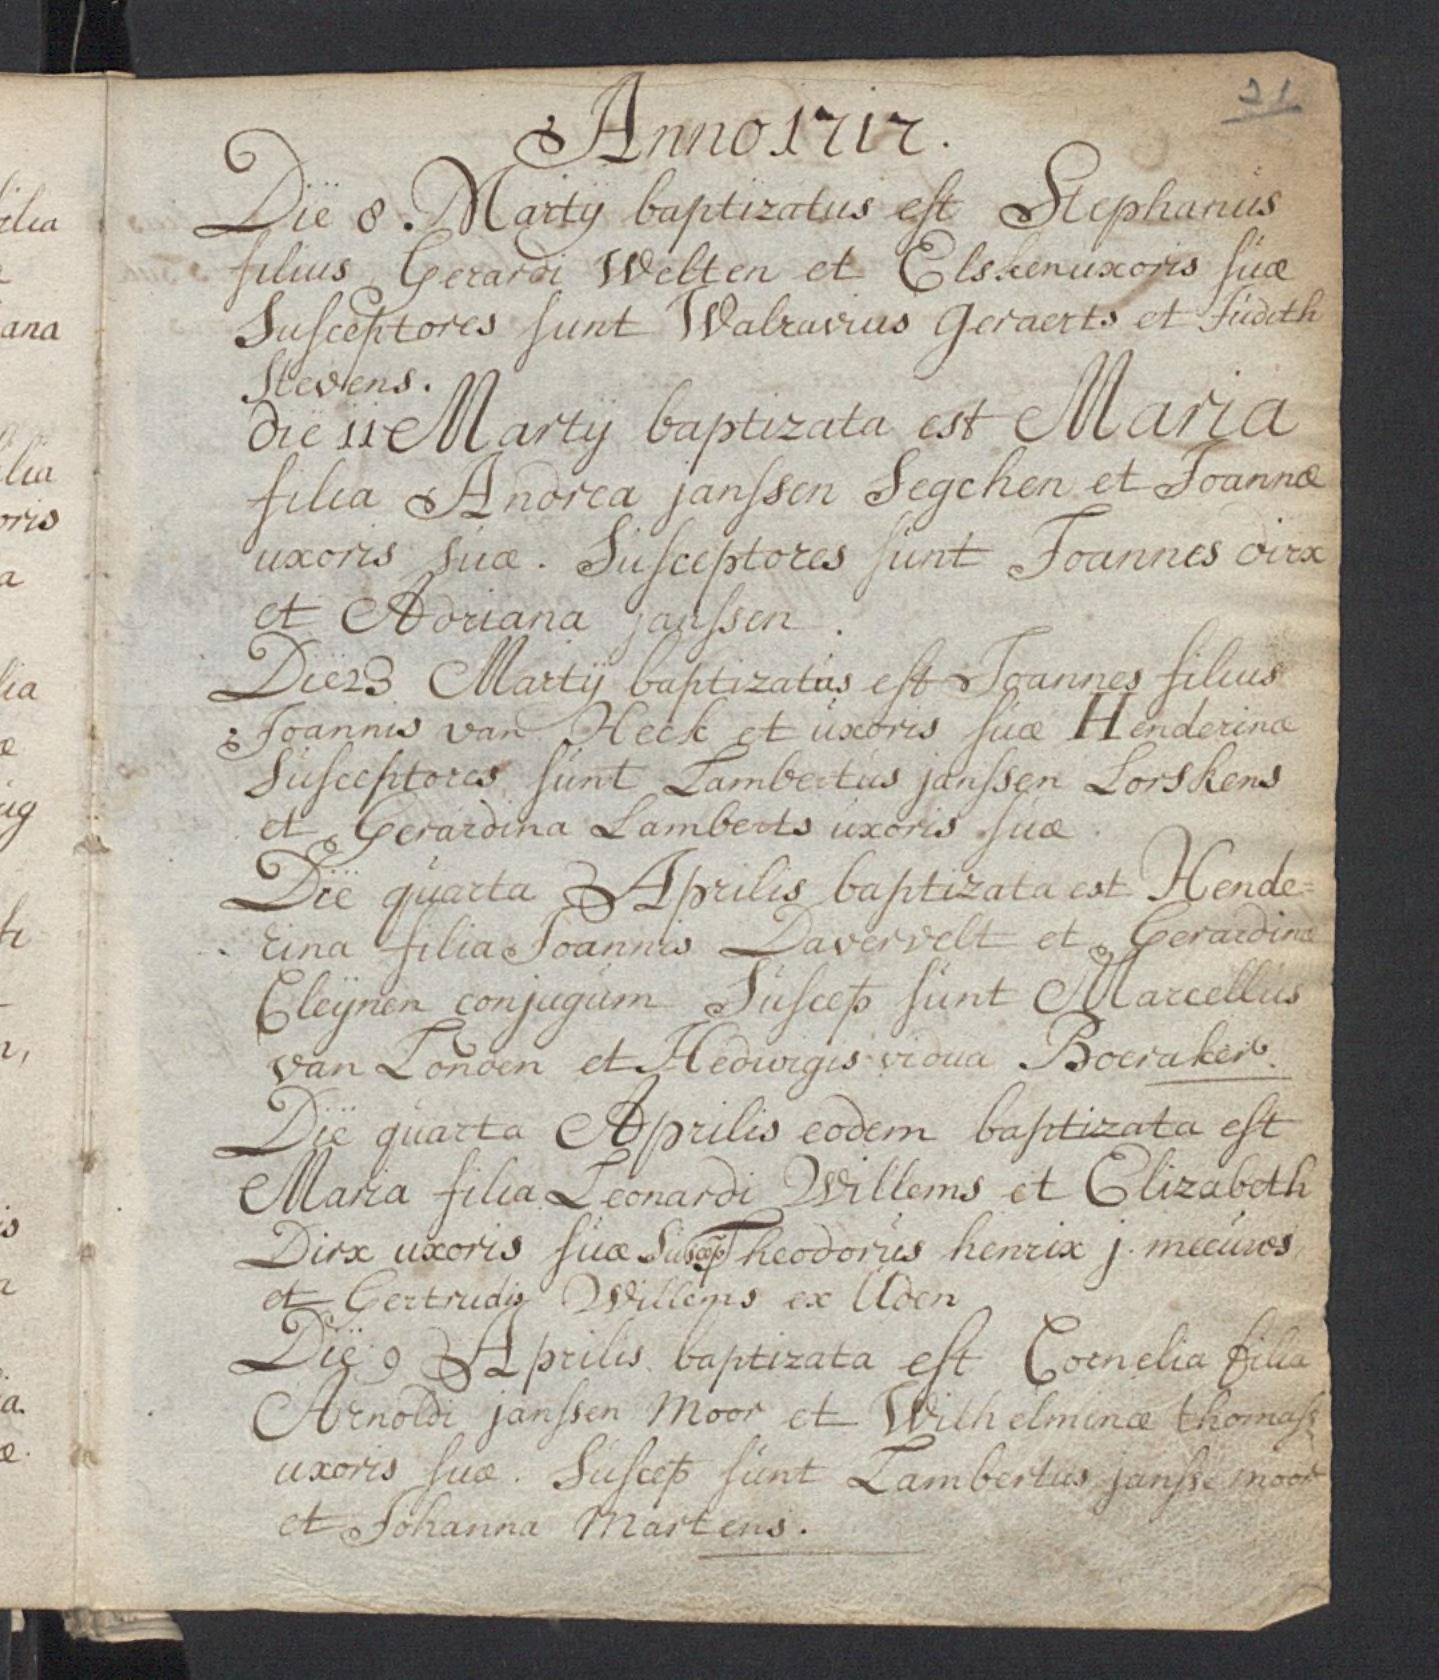 21
Anno 1717.
Die 8. Martÿ baptizatus est Stephanus
filius Gerardi Welten et Elsken uxoris suæ
Susceptores sunt Walravius Geraerts et Judeth
Stevens.
die 11 Martÿ baptizata est Maria
filia Andrea janssen Segchen et Joannæ
uxoris suæ. Susceptores sunt Joannes dirx
et Adriana janssen.
Die 23 Martÿ baptizatus est Joannes filius
Joannis van Heck et uxoris suæ Henderinæ
Susceptores sunt Lambertus janssen Lorskens
et Gerardina Lamberts uxoris suæ.
Die quarta Aprilis baptizata est Hende=
rina filia Joannis Davervelt et Gerardinæ
Cleÿnen conjugum Suscep sunt Marcellus
van Londen et Hedwigis vidua Boeraker.
Die quarta Aprilis eodem baptizata est
Maria filia Leonardi Willems et Elizabeth
Dirx uxoris suæ Suscep Theodorus henrix j. meeuws
et Gertrudis Willems ex Uden
Die 9 Aprilis baptizata est Cornelia filia
Arnoldi janssen Moor et Wilhelminæ thomass
uxoris suæ. Suscep sunt Lambertus jansse moor
et Johanna Martens.